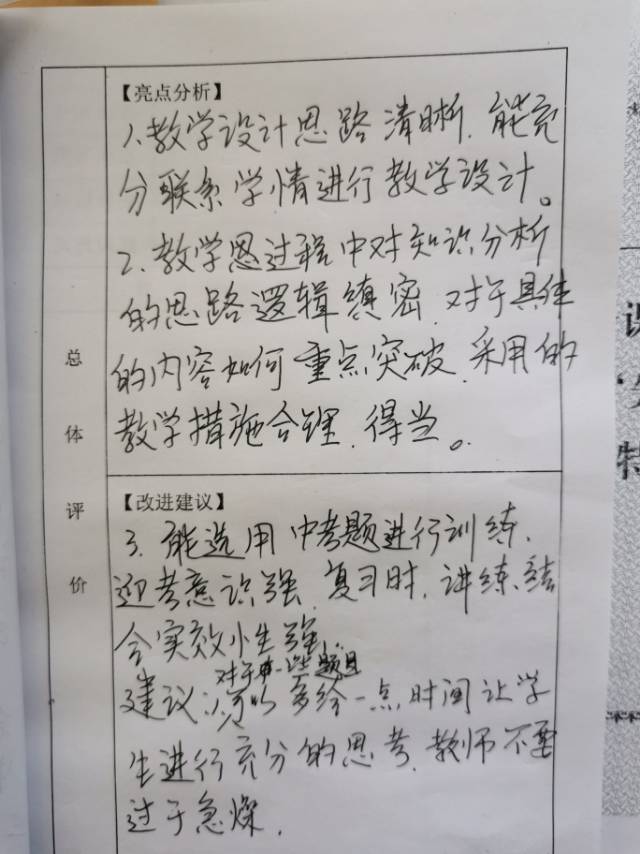 总体评价
【亮点分析】
1、教学设计思路清晰，能充
分联系学情进行教学设计。
2、教学思过程中对知识分析
的思路逻辑缜密，对于具体
的内容如何重点突破，采用的
教学措施合理、得当。
【改进建议】
3、能选用中考题进行训练，
迎考意识强，复习时，讲练结
合实效性强
对于一些题目
建议：可以多给一点时间让学
生进行充分的思考，教师不要
过于急燥．